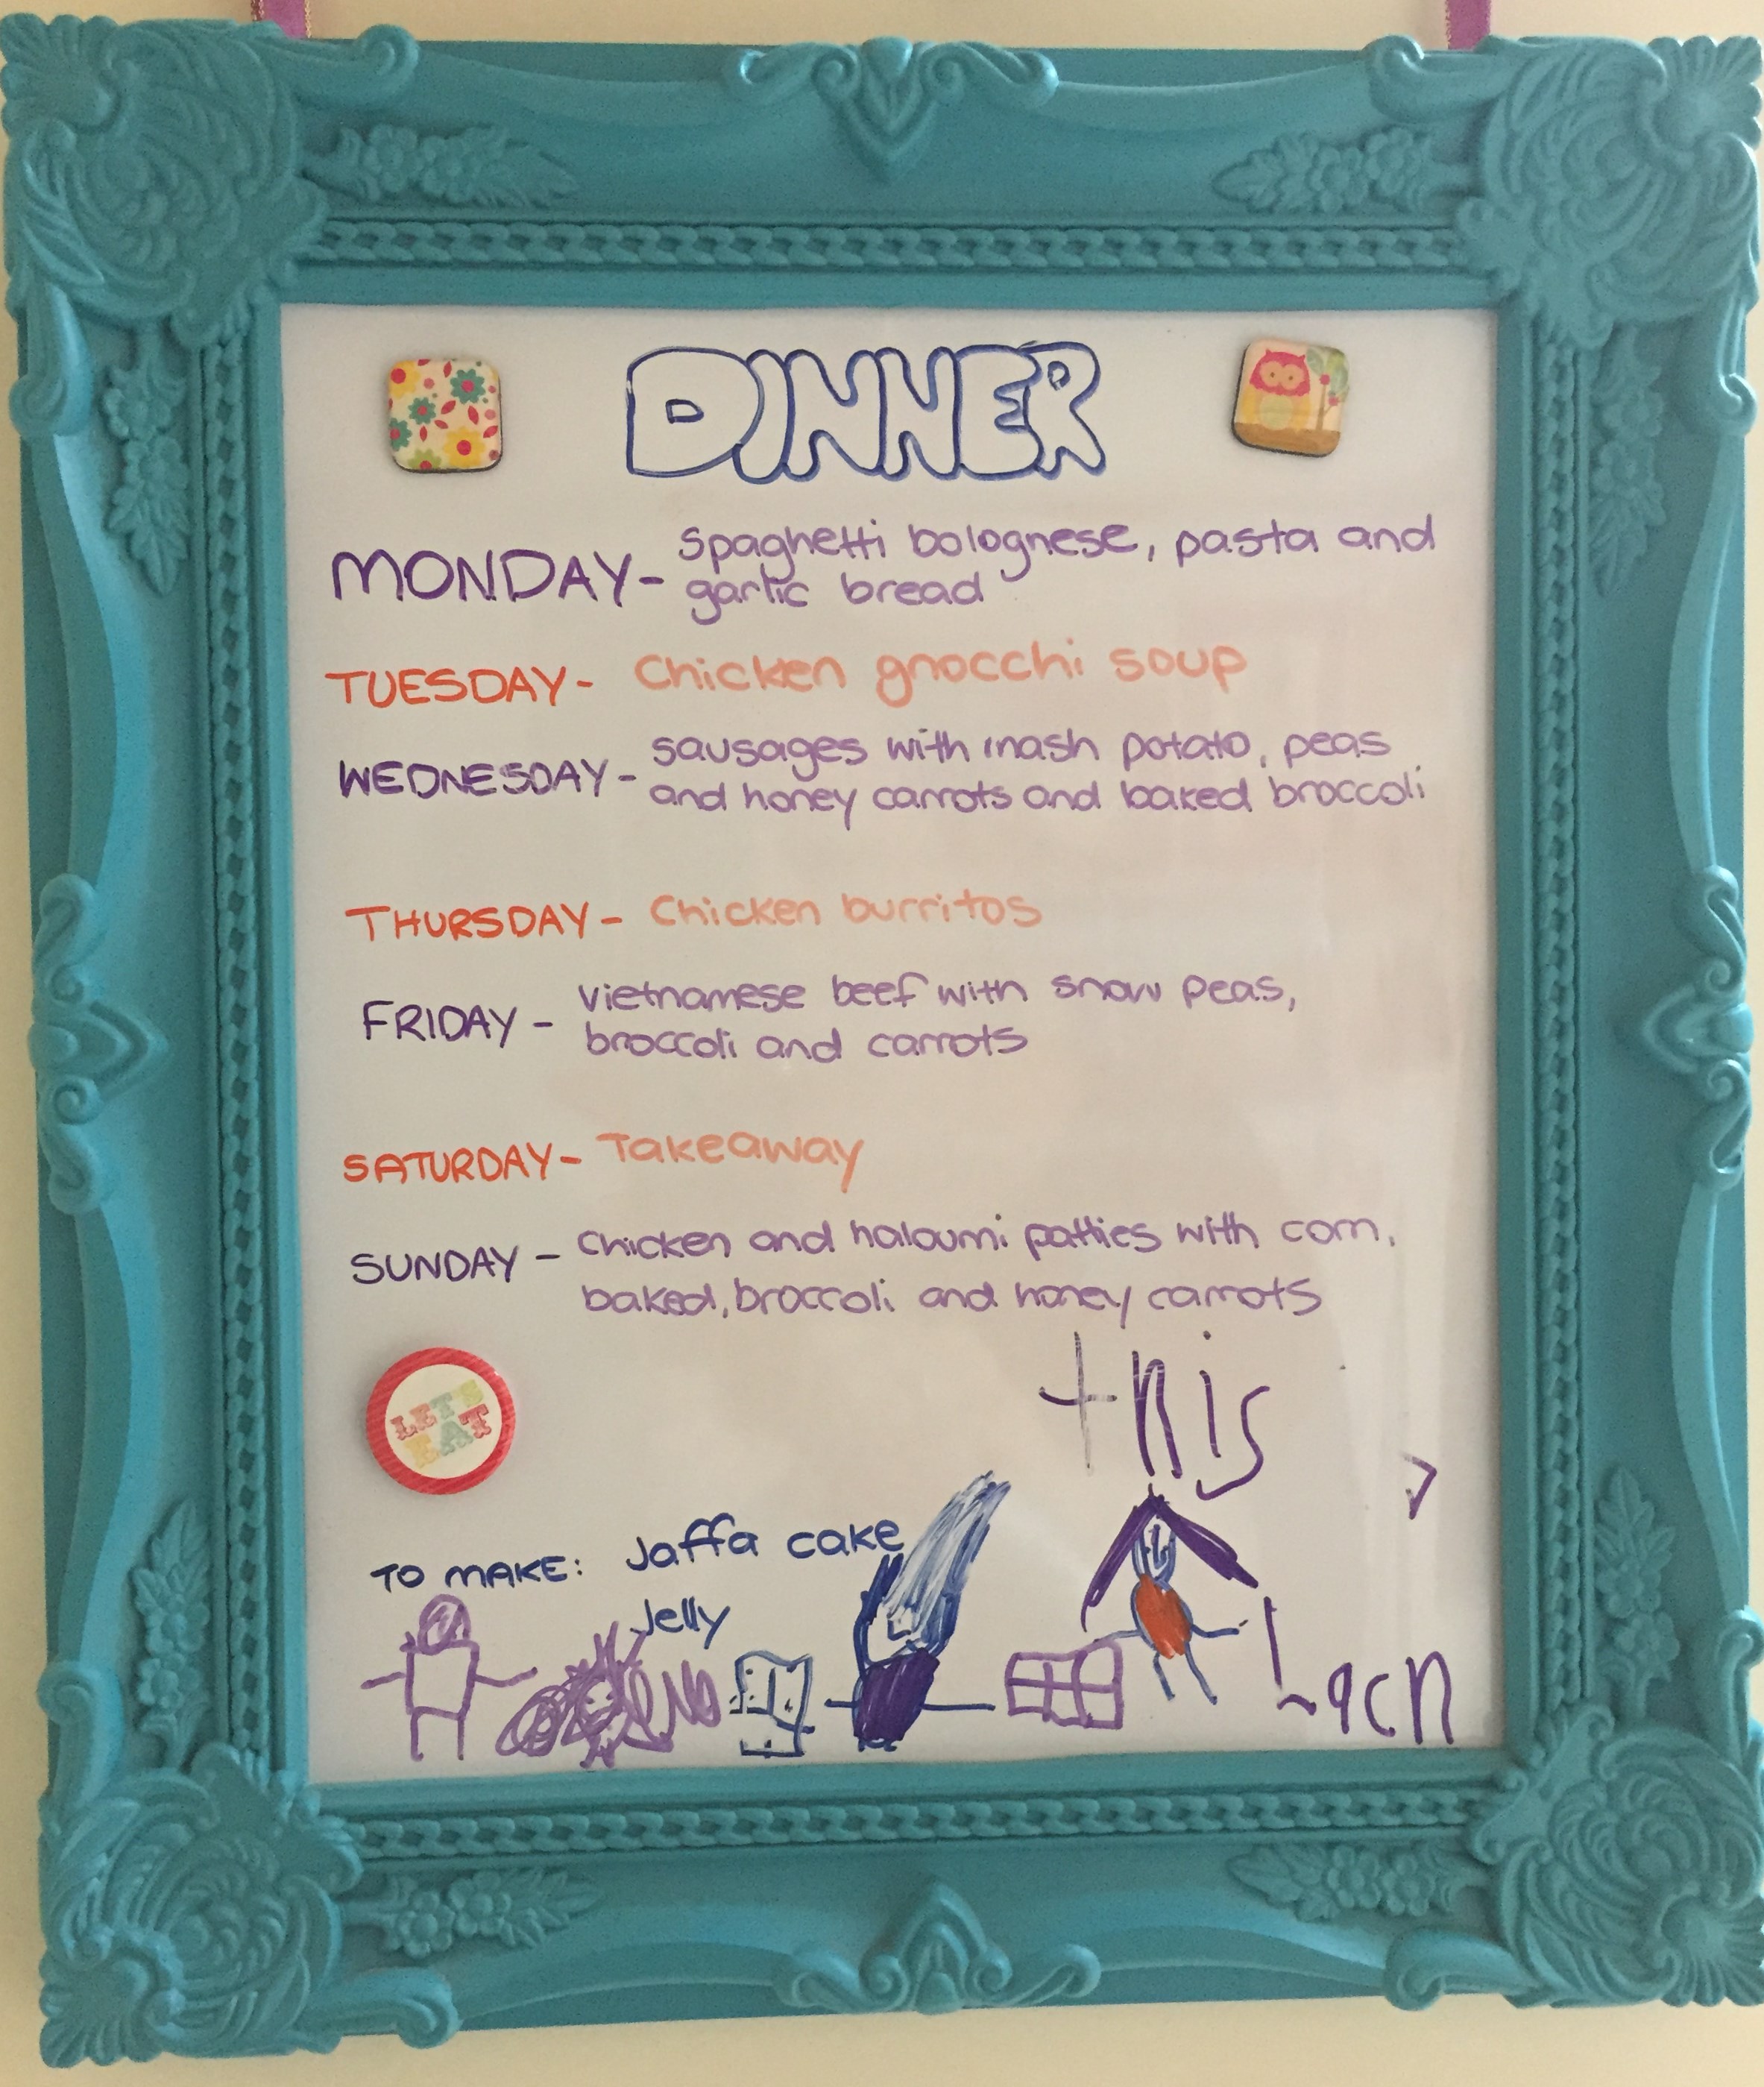 DINNER
MONDAY- spaghetti bolognese, pasta and
garlic bread
TUESDAY- Chicken gnocchi soup
WEDNESDAY- sausages with mash potato, peas
and honey carrots and baked broccoli
THURSDAY- Chicken burritos
FRIDAY- Vietnamese beef with snow peas,
broccoli and carrots
SATURDAY- Takeaway
SUNDAY- Chicken and haloumi patties with corn,
baked, broccoli and honey carrots
LET'S
EAT
this
TO MAKE: Jaffa cake
Jelly